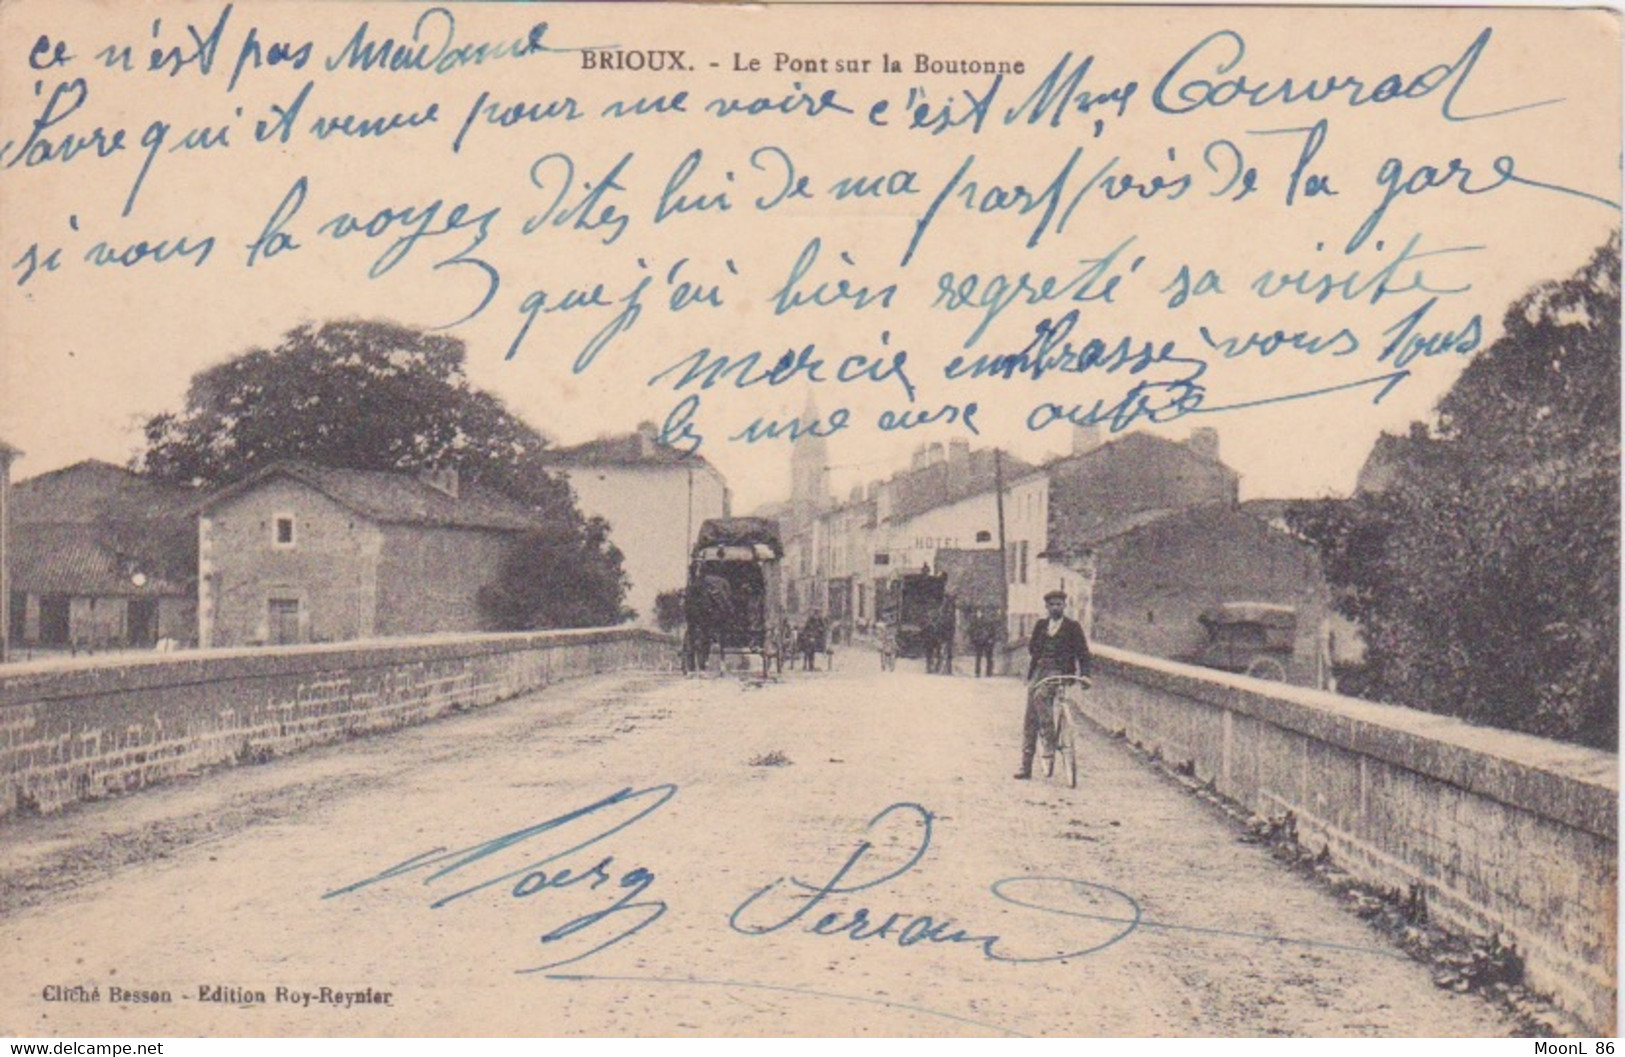 ce n'est pas Madame
BRIOUX. - Le Pont sur la Boutonne
Favre qui et venue pour me voire c'est Mme Convrad
si vous la voyez dites lui de ma part près de la gare
que j'ai bien regreté sa visite
mercie embrasse vous tous
les une aux autre
HOTEL
Marg
Cliché Besson - Edition Roy-Reynier
MoonL 86